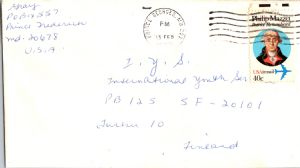 P.O.Box 557
Prince Frederick
Md. 20678
U.S.A.
PRINCE GEORGES, MD
PM
15 FEB
Philip Mazzei
Patriot Remembered
USAirmail
40c
I. Y. S.
International Youth Ser
PB 125 SF-20101
Turku 10
Finland